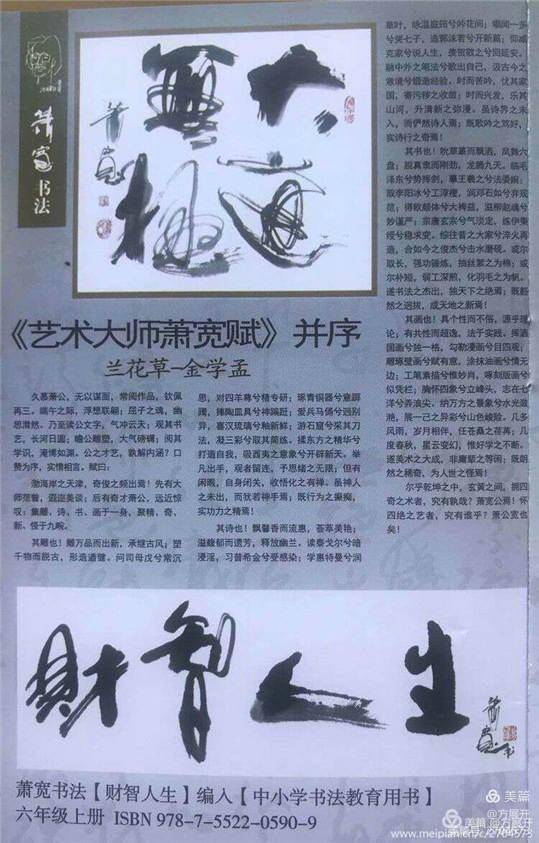 萧宽书法
大道
无极
萧宽
《艺术大师萧宽赋》并序
兰花草-金学孟
久慕萧公,无以谋面,常阅作品,钦佩
再三。端午之际,浮想联翩:屈子之魂,幽
思潸然。乃至读公文字,气冲云天;观其书
艺,长河日圆;瞻公雕塑,大气磅礴;阅其
学识,淹博如渊。公之才艺,孰解内涵?口
赞为序,实情相言。赋曰:
渤海岸之天津,奇俊之频出焉!先有大
师范曾,遐迩美谈;后有奇才萧公,远近惊
叹:集雕、诗、书、画于一身,聚精、奇、
新、怪于九畹。
其雕也!雕万品而出新,承继古风;塑
千物而脱古,形造遒健。问司母戊兮常沉
思,对四羊尊兮精专研;琢青铜器兮意踯
躅,捧陶盟具兮神蹁跹;爱兵马俑兮迥别
异,喜汉琉璃兮釉新鲜;游石窟兮采其刀
法,凝三彩兮取其简练。揉东方之精华兮
打造自我,吸西夷之意象兮开辟新天。举
凡出手,观者留连,予思绪之无限;但有
闲暇,自身闭关,收悟化之有禅。虽神人
之未出,而犹若神手焉;既行为之癫痴,
实功力之精焉!
其诗也!飘馨香而流惠,荟萃美艳;
溢馥郁而遗芳,释放幽兰。读泰戈尔兮暗
浸淫,习普希金兮受感染;学惠特曼兮润
草叶,咏温庭筠兮吟花间;唱闻一多
兮哭七子,追郭沫若兮开新篇;仰臧
克家兮说人生,羡贺敬之兮回延安。
融中外之笔法兮歌出自己,汲古今之
意境兮锻造经验。时而苦吟,仗其家
国,寄污秽之收敛;时而兴发,乐其
山河,升清新之弥漫。虽诗界之未
入,而俨然诗人焉;既歌吟之笃好,
实诗行之奇焉!
其书也!吮草篆而飘洒,凤舞六
盘;脱真隶而刚劲,龙腾九天。临毛
泽东兮势挥剑,摹王羲之兮法委婉;
取李阳冰兮工淳稷,润邓石如兮弃观
范;得欧颜体兮大褥益,滋柳赵魂兮
妙谨严;宗唐玄宗兮气淡定,练伊秉
绶兮稳求变。综往昔之大家兮淬火再
造,合如今之俊杰兮击水磨砚。或尔
取长,强功锤炼,抽丝絮之为棉;或
尔补短,弱工深煎,化羽毛之为帆。
遂书法之杰出,独天下之绝焉;既毅
然之选拔,成天地之新焉!
其画也!具个性而不俗,源乎理
论;有共性而超逸,法于实践。挥洒
国画兮独一格,勾勒漫画兮目四观;
雕琢壁画兮赋有意,涂抹油画兮情无
边;工笔素描兮惟妙肖,啄刻版画兮
似凭栏;胸怀四象兮立峰头,志在七
洋兮弄浪尖。纳万方之景象兮水光潋
滟,展一己之异彩兮山色峻险。几多
风雨,岁月相伴,任苍桑之荏苒;几
度春秋,星云变幻,惟好学之不断。
遂美术之大成,非庸辈之等闲;既朗
然之稀奇,为人世之怪焉!
尔乎乾坤之中,玄黄之间。拥四
奇之术者,究有孰哉?萧宽公焉!怀
四绝之艺者,究有谁乎?萧公宽也
矣!
财智人生
萧宽书
萧宽书法【财智人生】编入【中小学书法教育用书】
六年级上册 ISBN 978-7-5522-0590-9
美篇
@方展开
www.meipian.cn/c/2704573